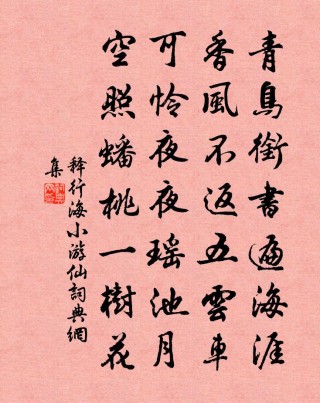 青鳥銜書遍海涯
香風不返五雲車
可怜夜夜瑶池月
空照蟠桃一樹花
釋行海小游仙詞典網
集